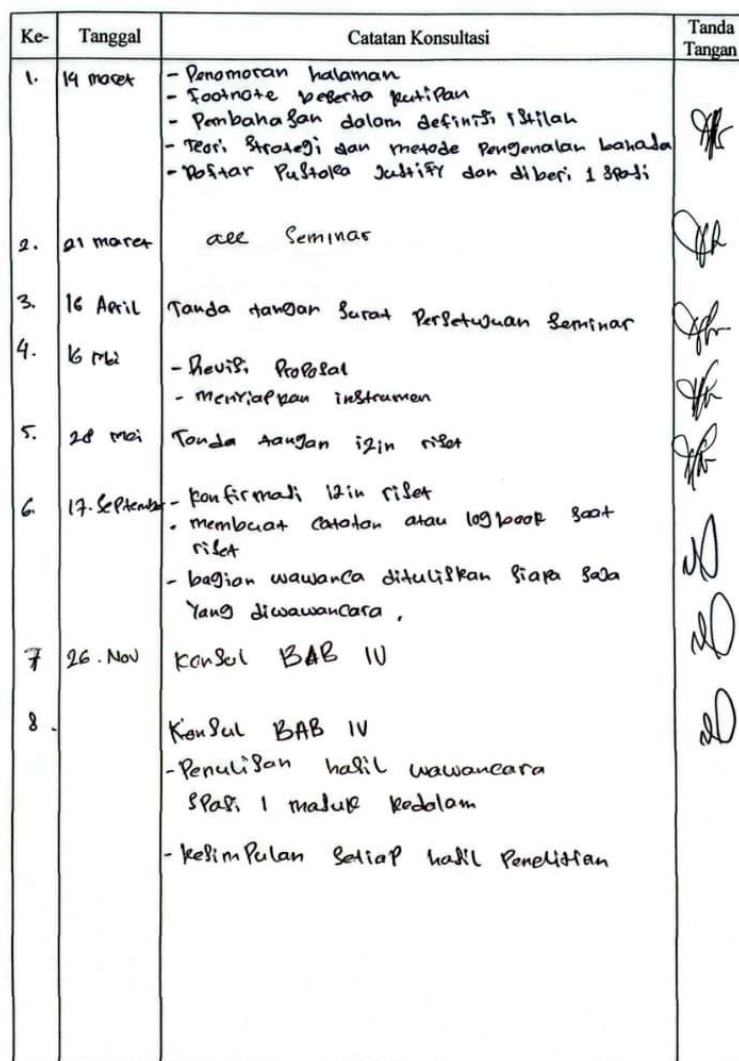 Ke- Tanggal Catatan Konsultasi Tanda Tangan
1. 14 maret - Penomoran halaman
- Footnote beserta kutipan
- Pembahasan dalam definisi istilah
- Teori Strategi dan metode Pengenalan bahasa
- Daftar Pustaka Justify dan diberi 1 spasi
2. 21 maret acc Seminar
3. 16 April Tanda tangan Surat Persetujuan Seminar
4. 16 Mei - Revisi Proposal
- menyiapkan instrumen
5. 28 mei Tanda tangan izin riset
6. 17. September - konfirmasi izin riset
- membuat catatan atau logbook saat
riset
- bagian wawanca dituliskan siapa saja
yang diwawancara.
7 26. Nov Konsul BAB IV
8. Konsul BAB IV
- Penulisan hasil wawancara
spasi 1 masuk kedalam
- kesimpulan setiap hasil Penelitian